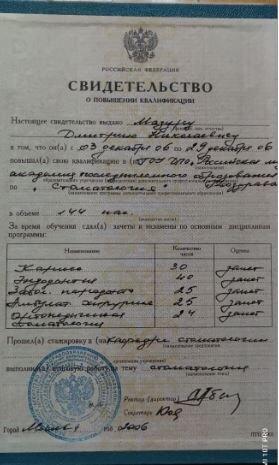 РОССИЙСКАЯ ФЕДЕРАЦИЯ
СВИДЕТЕЛЬСТВО
О ПОВЫШЕНИИ КВАЛИФИКАЦИИ
Настоящее свидетельство выдано Мазуру
Дмитрию Николаевичу
в том, что он(а) с 03 декабря 06 по 29 декабря 06
повышал(а) свою квалификацию в (на) ГОУ ДПО Российская
академия последипломного образования
по „Стоматология"
в объеме 144 час.
За время обучения сдал(а) зачеты и экзамены по основным дисциплинам
программы:
Наименование Количество часов Оценка
Кариес 30 зачет
Эндодонтия 40 зачет
Забол. пародонта 25 зачет
Амбулат. хирургия 25 зачет
Ортопедическая 24 зачет
стоматология
Прошел(а) стажировку в (на) кафедре стоматологии
выполнил(а) итоговую работу на тему стоматология
М.П.
Ректор (директор)
Секретарь
Город Москва год 2006